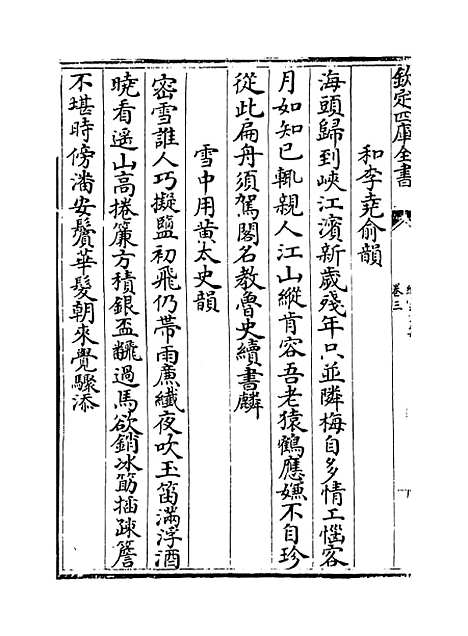 欽定四庫全書
卷三
和李堯俞韻
海頭歸到峽江濱新歲殘年只並隣梅自多情工惱客
月如知已輒親人江山縱肯容吾老猿鶴應嫌不自珍
從此扁舟須駕閣名教魯史續書麟
雪中用黄太史韻
密雪誰人巧擬鹽初飛仍帶雨廉纖夜吹玉笛滿浮酒
曉看遥山高捲簾方積銀盃翻過馬欲銷冰筯插疎簷
不堪時傍潘安鬢華髮朝來覺驟添